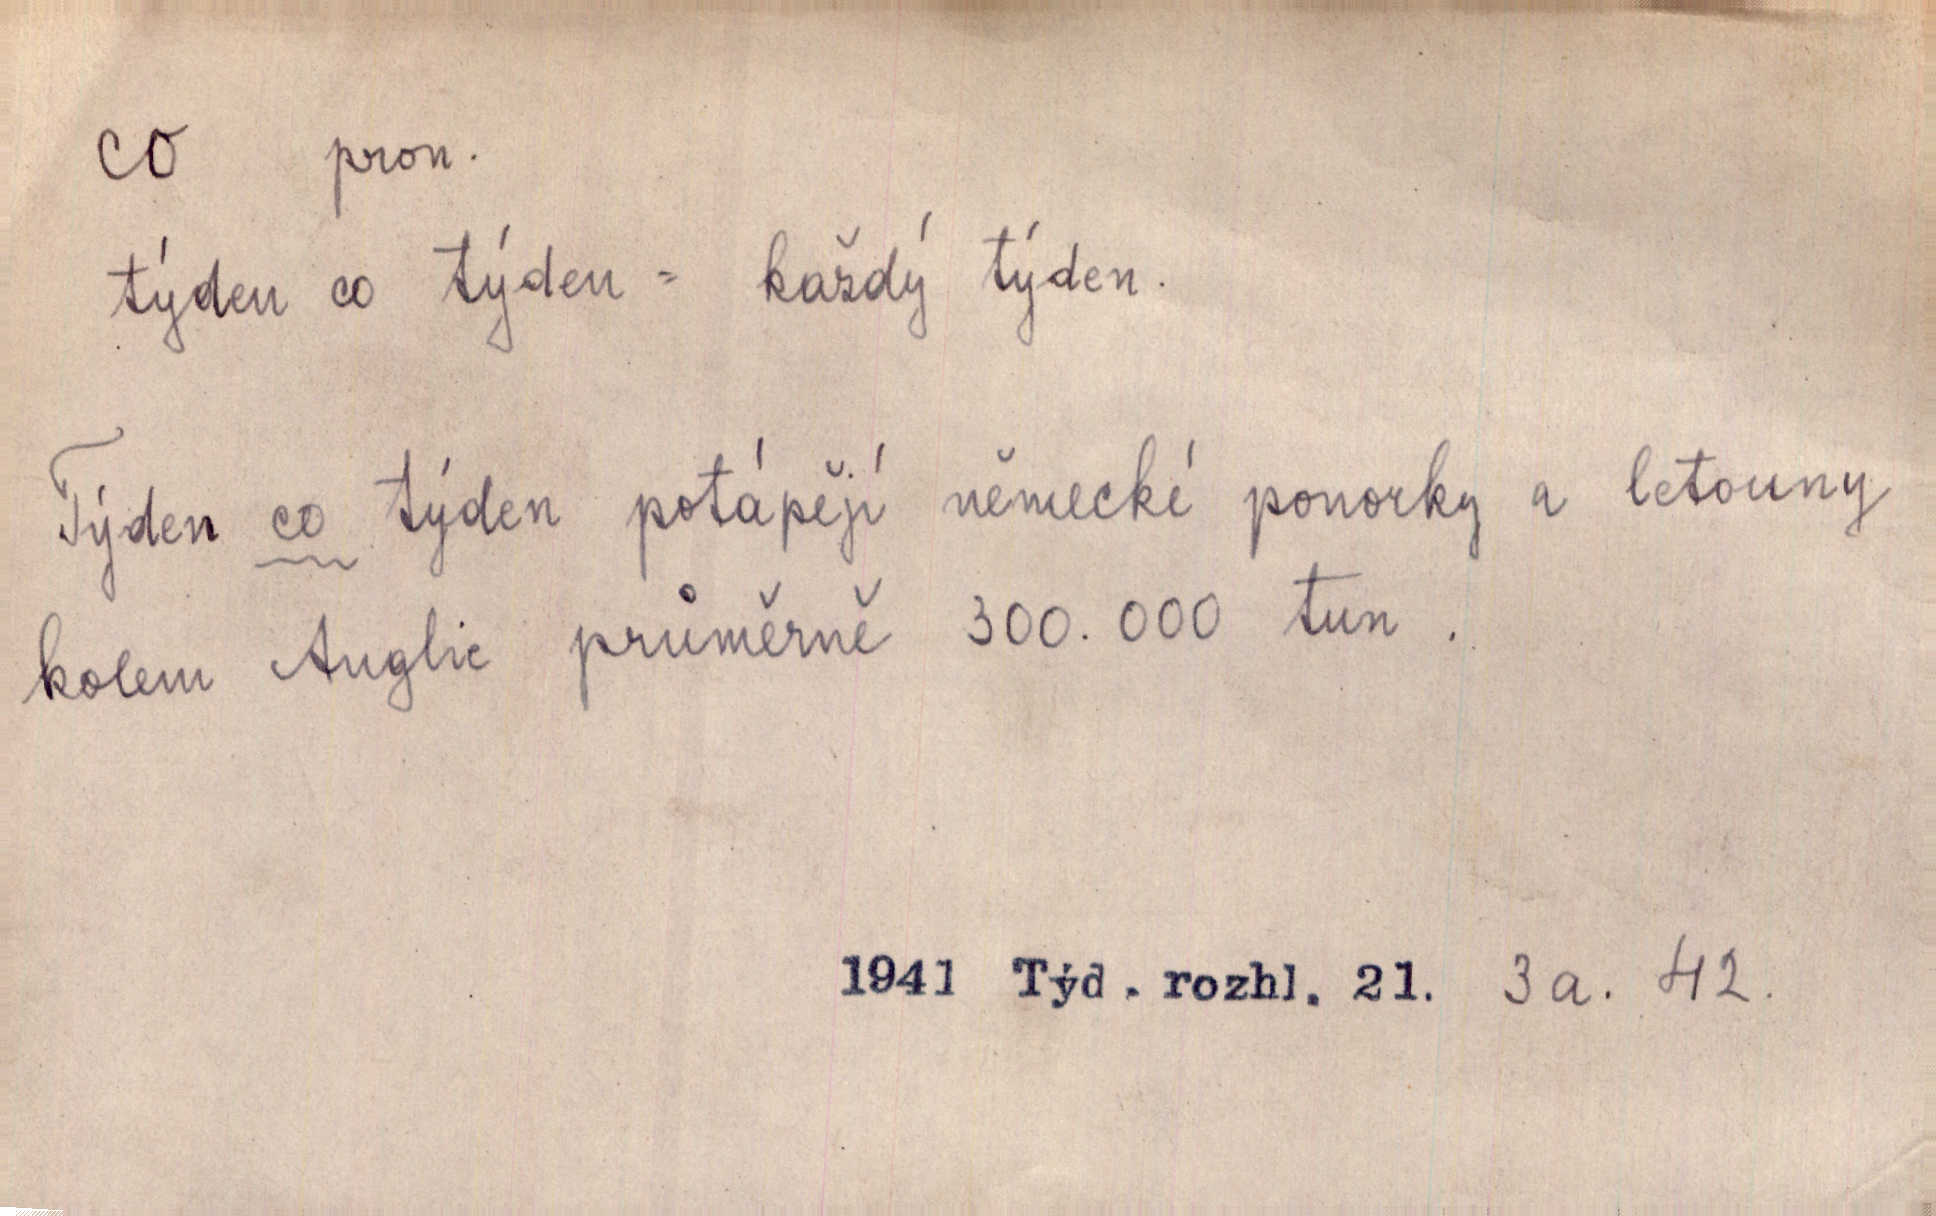 co pron.
týden co týden = každý týden.
Týden co týden potápějí německé ponorky a letouny
kolem Anglie průměrně 300.000 tun.
1941 Týd. rozhl. 21. 3a. 42.